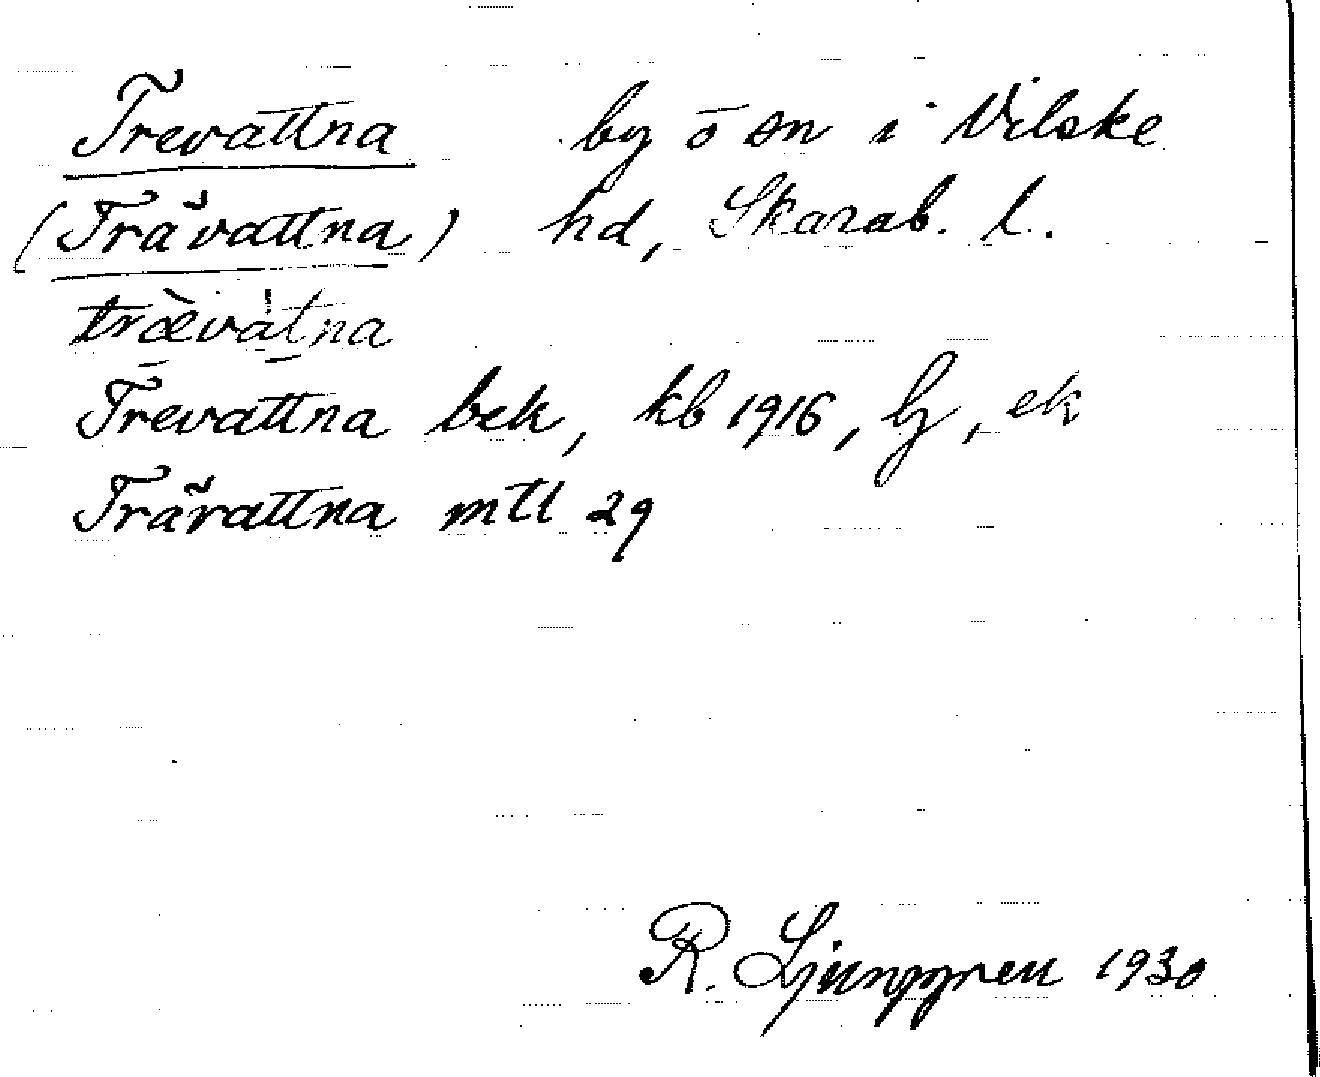 Trevattna by o sn i Vilske
(Trävattna) hd, Skarab. l.
træ̀vát̀na
Trevattna bek, kb 1916, lj, ek
Trävattna mtl 29
R. Ljunggren 1930